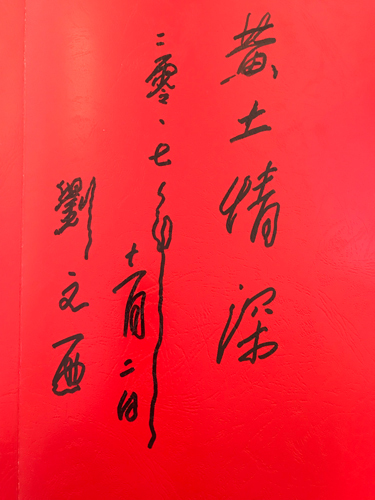 黄土情深
二零一七年
十一月二日
劉文西